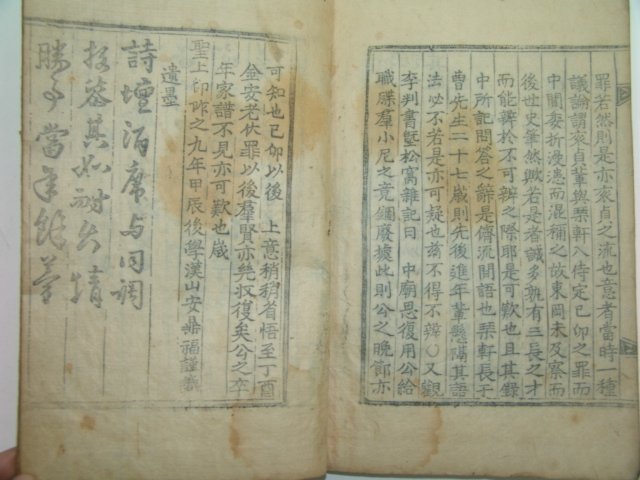 罪若然則是亦袞貞之流也意者當時一種
議論謂袞貞輩與琹軒八侍定己卯之罪而
中間委折湮漶而混稱之故東岡未及察而
後世史筆然歟若是者誠多孰有三長之才
而能辨於不可辨之際耶是可歎也且其錄
中所記問答之辭是儕流間語也琹軒長于
曺先生二十七歲則先後進年輩懸隔其語
法必不若是亦可疑也玆不得不辨○又觀
李判書墍松窩雜記曰 中廟思復用公給
職牒羣小尼之竟錮廢據此則公之晩節亦
可知也已卯以後 上意稍稍省悟至丁酉
金安老伏罪以後羣賢亦㡬収復矣公之卒
年家譜不見亦可歎也歲
聖上卽阼之九年甲辰後學漢山安鼎福謹識
遺墨
詩壇酒席与同調
投簪其如
勝事當年